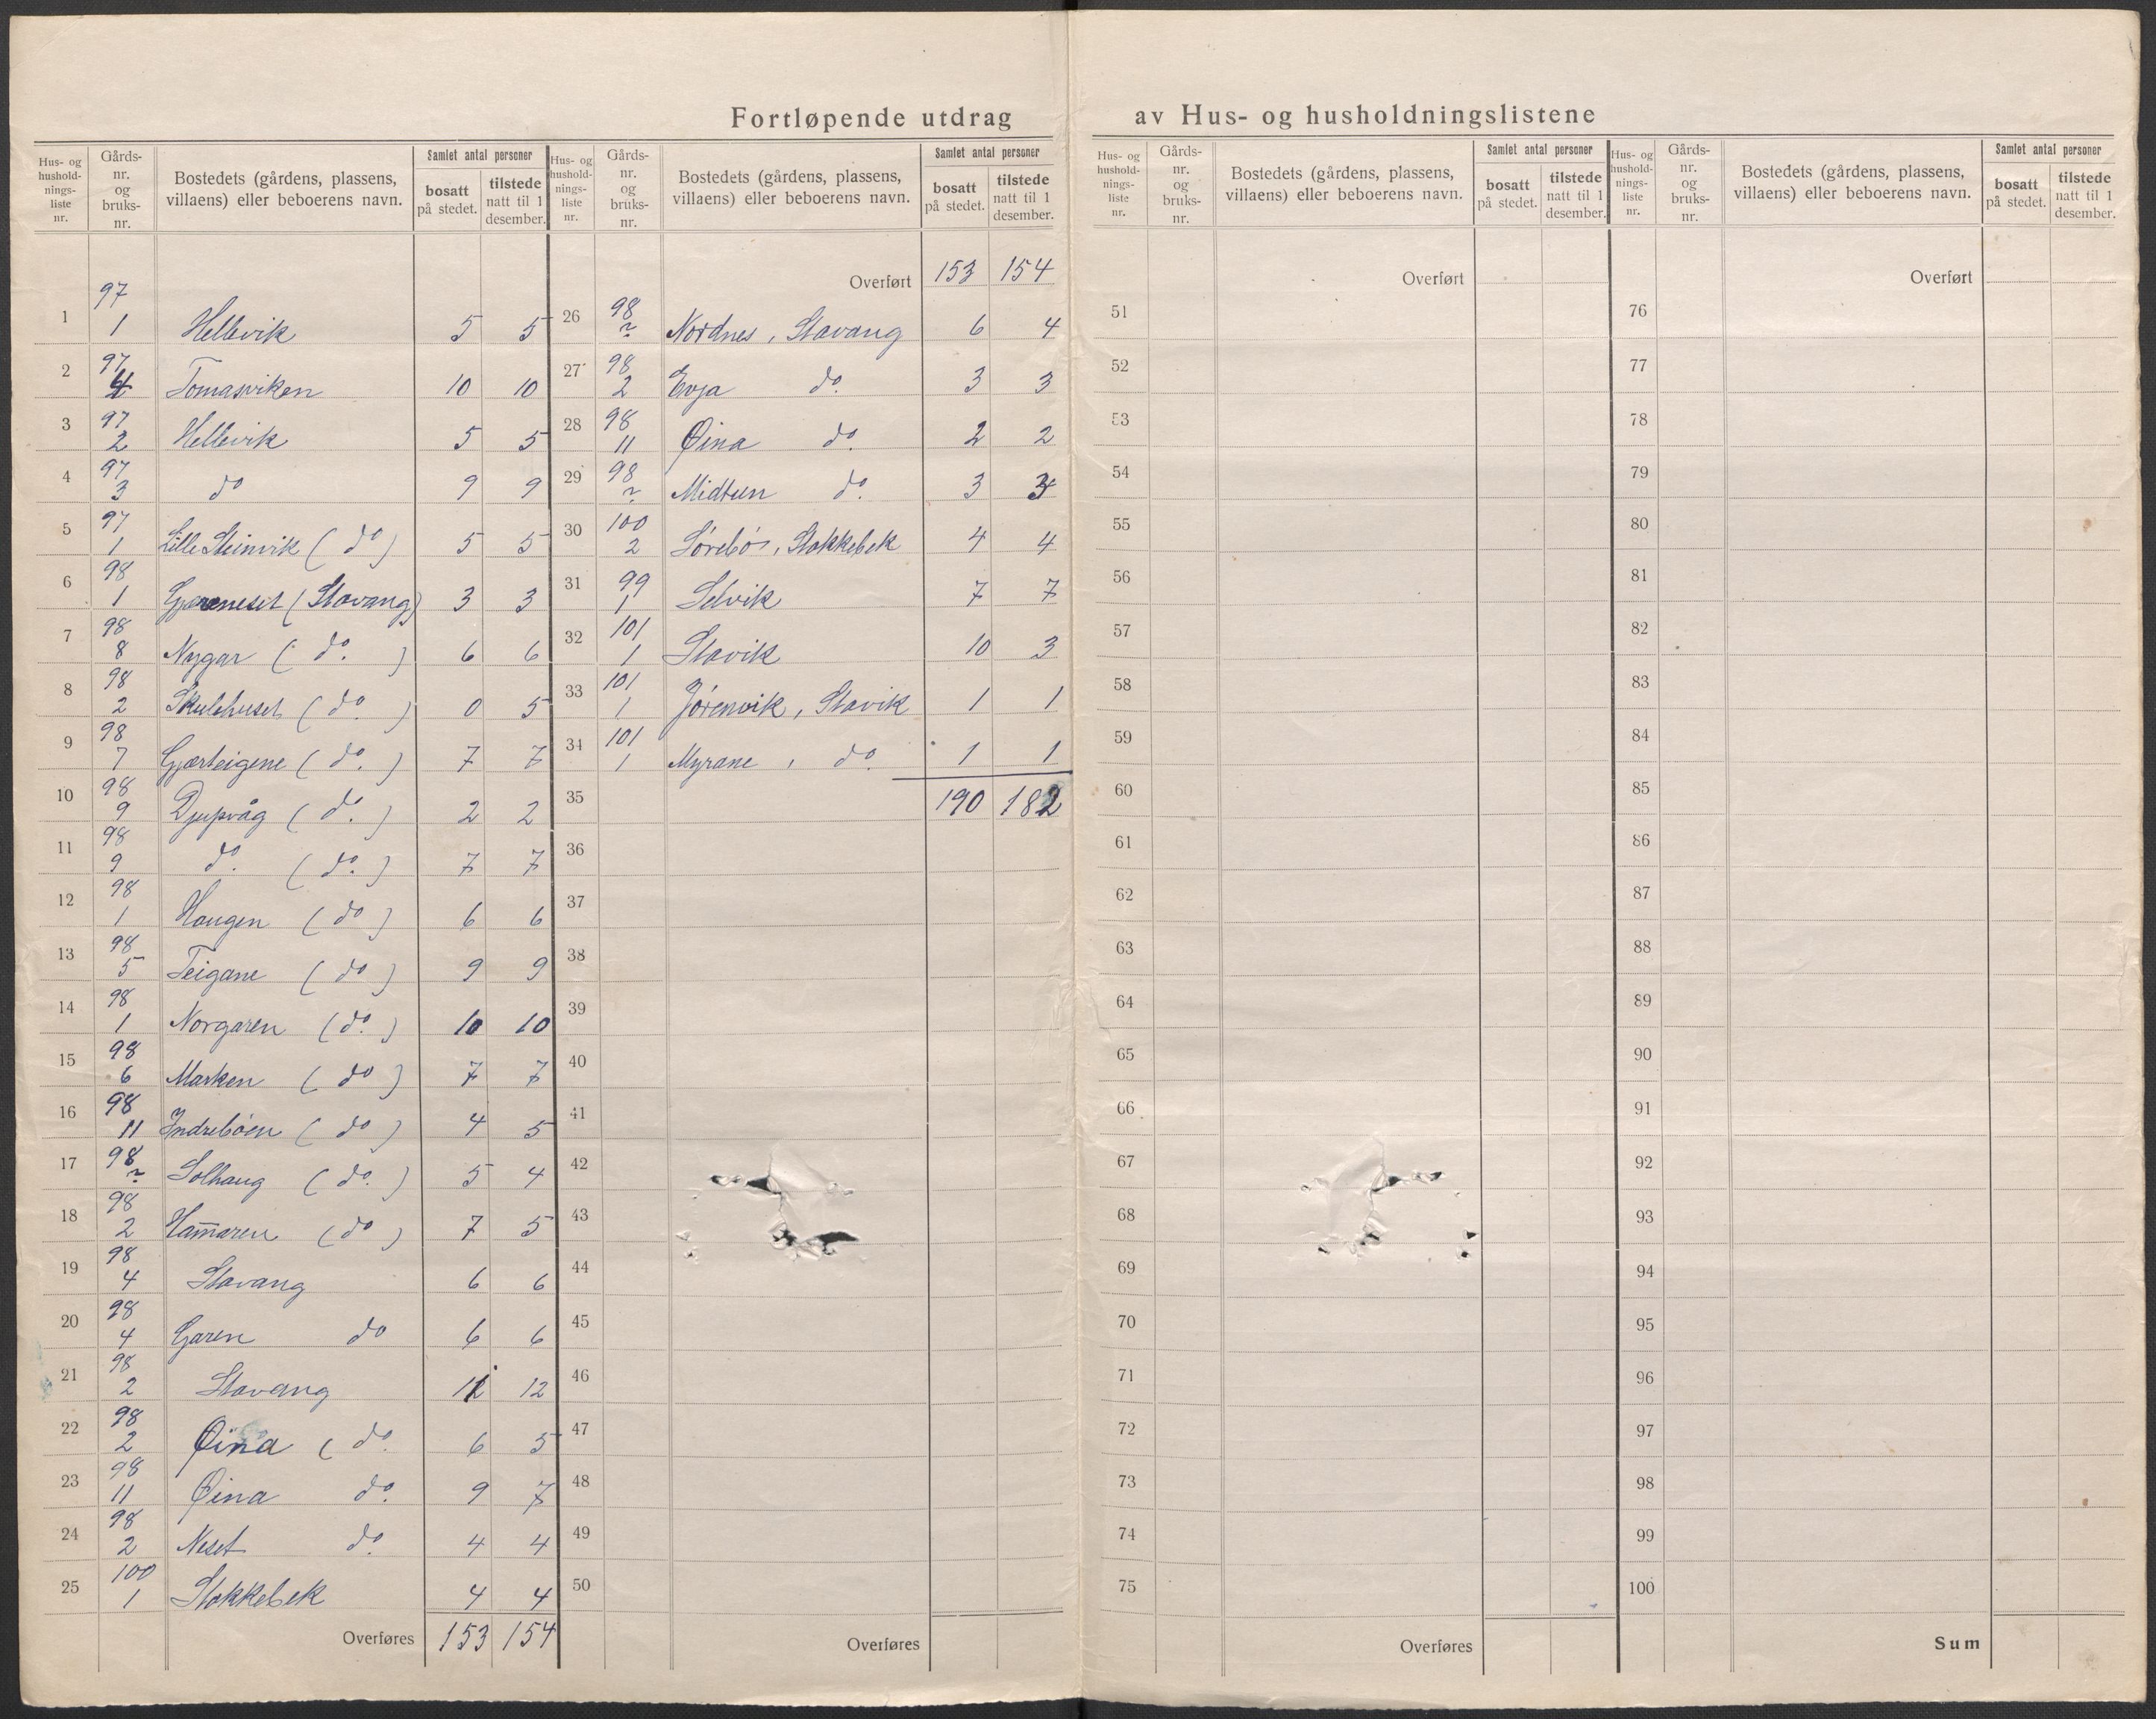 Fortløpende utdrag av Hus- og husholdningslistene
Hus- og hushold-nings-liste nr. | Gårds-nr. og bruks-nr. | Bostedets (gårdens, plassens, villaens) eller beboerens navn. | Samlet antal personer | bosatt på stedet. | tilstede natt til 1 desember.
1 97 1 Hellevik 5 5
2 97 4 Tomasviken 10 10
3 97 2 Hellevik 5 5
4 97 3 do 9 9
5 97 1 Lille Steinvik (do) 5 5
6 98 1 Gjæreneset (Stavang) 3 3
7 98 8 Nygar (do.) 6 6
8 98 2 Skulehuset (do.) 0 5
9 98 7 Gjærteigene (do.) 7 7
10 98 9 Djupvåg (do.) 2 2
11 98 9 do. (do.) 7 7
12 98 1 Haugen (do) 6 6
13 98 5 Teigane (do) 9 9
14 98 1 Norgaren (do.) 10 10
15 98 6 Marken (do) 7 7
16 98 11 Indrebøen (do) 4 5
17 98 ~ Solhaug (do.) 5 4
18 98 2 Ham̄aren (do) 7 5
19 98 4 Stavang 6 6
20 98 4 Garen do 6 6
21 98 2 Stavang 11 12
22 98 2 Øina (do. 6 5
23 98 11 Øina do. 9 7
24 98 2 Neset do. 4 4
25 100 1 Stokkebek 4 4
Overføres 153 154
Hus- og hushold-nings-liste nr. | Gårds-nr. og bruks-nr. | Bostedets (gårdens, plassens, villaens) eller beboerens navn. | Samlet antal personer | bosatt på stedet. | tilstede natt til 1 desember.
Overført 153 154
26 98 ~ Nordnes, Stavang 6 4
27 98 2 Evja do. 3 3
28 98 11 Øina do. 2 2
29 98 ~ Midtun do. 3 3
30 100 2 Sørebø, Stokkebek 4 4
31 99 1 Selvik 7 7
32 101 1 Stavik 10 3
33 101 1 Jørenvik, Stavik 1 1
34 101 1 Myrane, do. 1 1
35 190 182
36
37
38
39
40
41
42
43
44
45
46
47
48
49
50
Overføres
Hus- og hushold-nings-liste nr. | Gårds-nr. og bruks-nr. | Bostedets (gårdens, plassens, villaens) eller beboerens navn. | Samlet antal personer | bosatt på stedet. | tilstede natt til 1 desember.
Overført
51
52
53
54
55
56
57
58
59
60
61
62
63
64
65
66
67
68
69
70
71
72
73
74
75
Overføres
Hus- og hushold-nings-liste nr. | Gårds-nr. og bruks-nr. | Bostedets (gårdens, plassens, villaens) eller beboerens navn. | Samlet antal personer | bosatt på stedet. | tilstede natt til 1 desember.
Overført
76
77
78
79
80
81
82
83
84
85
86
87
88
89
90
91
92
93
94
95
96
97
98
99
100
Sum